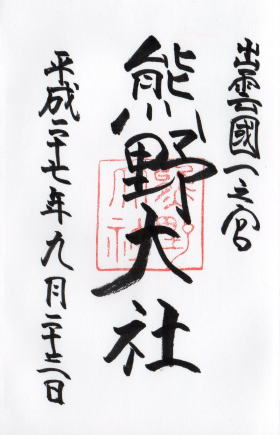 出雲國一之宮
熊野大社
平成二十七年九月二十三日
熊野大社